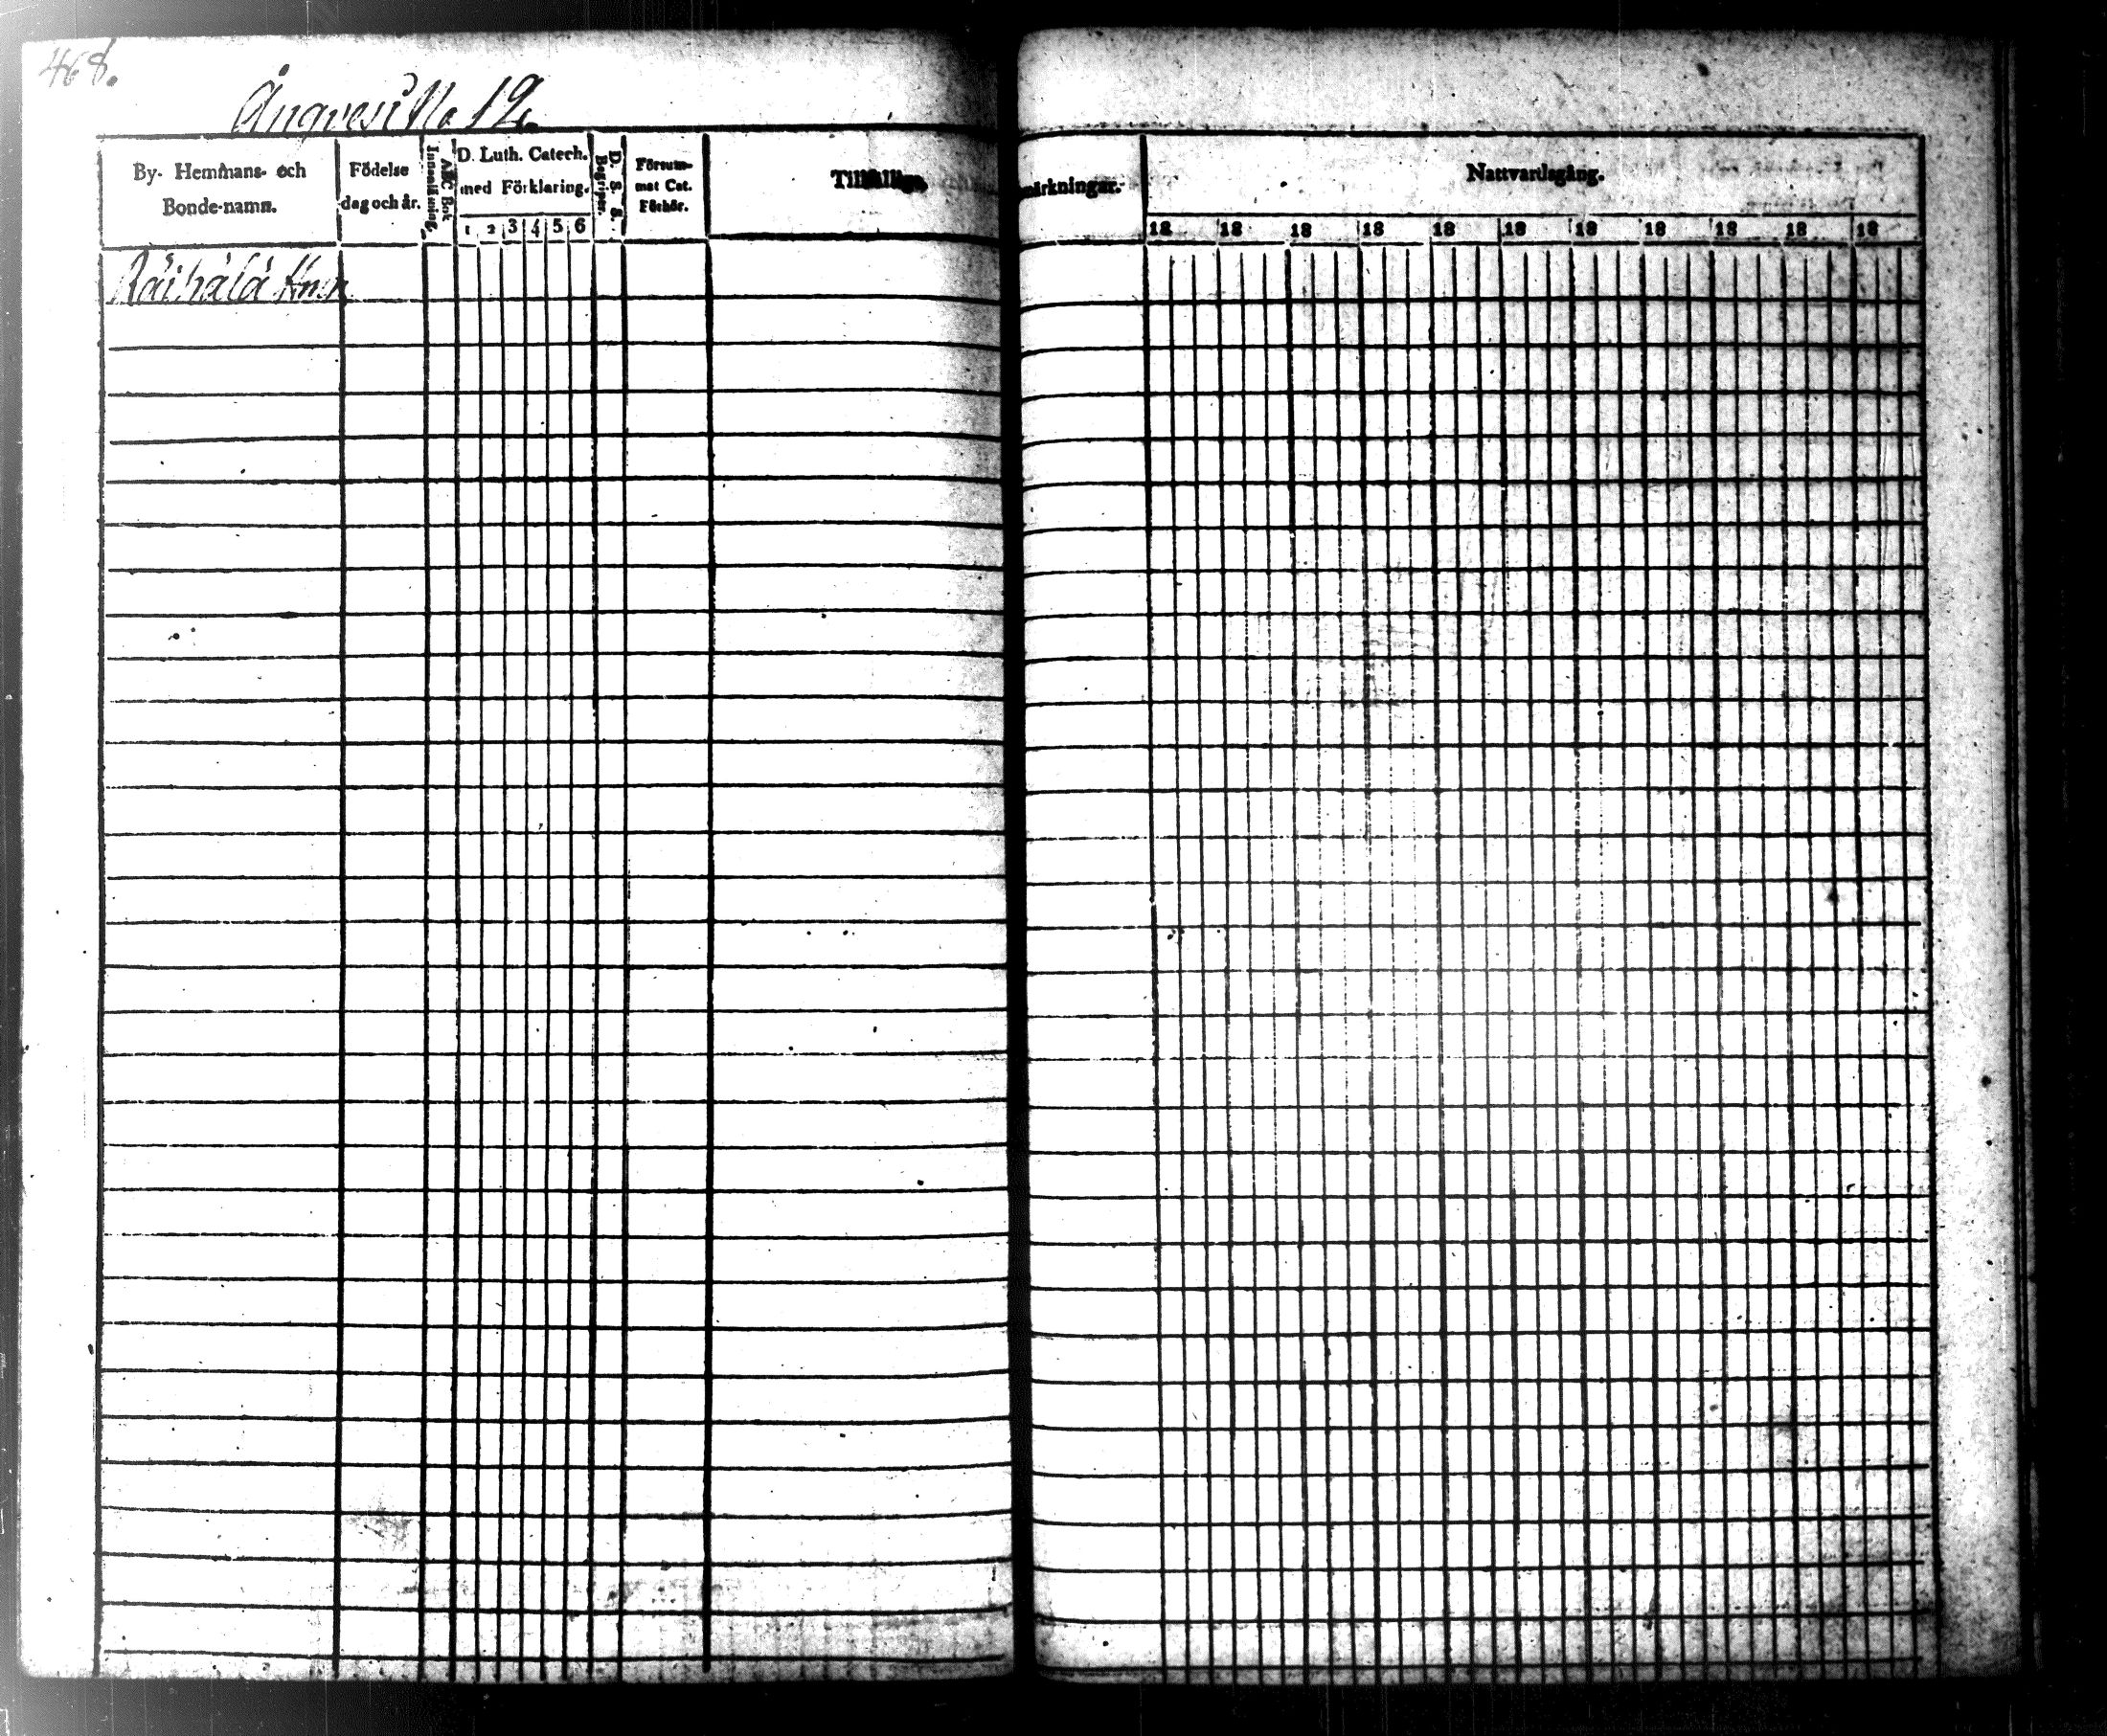 468.
Ångvesi No 12.
By- Hemmans- och
Bonde-namn.
Födelse
dag och år.
ABC Bok
Innantläsning.
D. Luth. Catech.
med Förklaring.
1 2 3 4 5 6
D. S. S.
Begriper.
Försum-
mat Cat.
Förhör.
Tillfällige
märkningar.
Nattvardsgång.
18 18 18 18 18 18 18 18 18 18 18
Räihälä Hmn